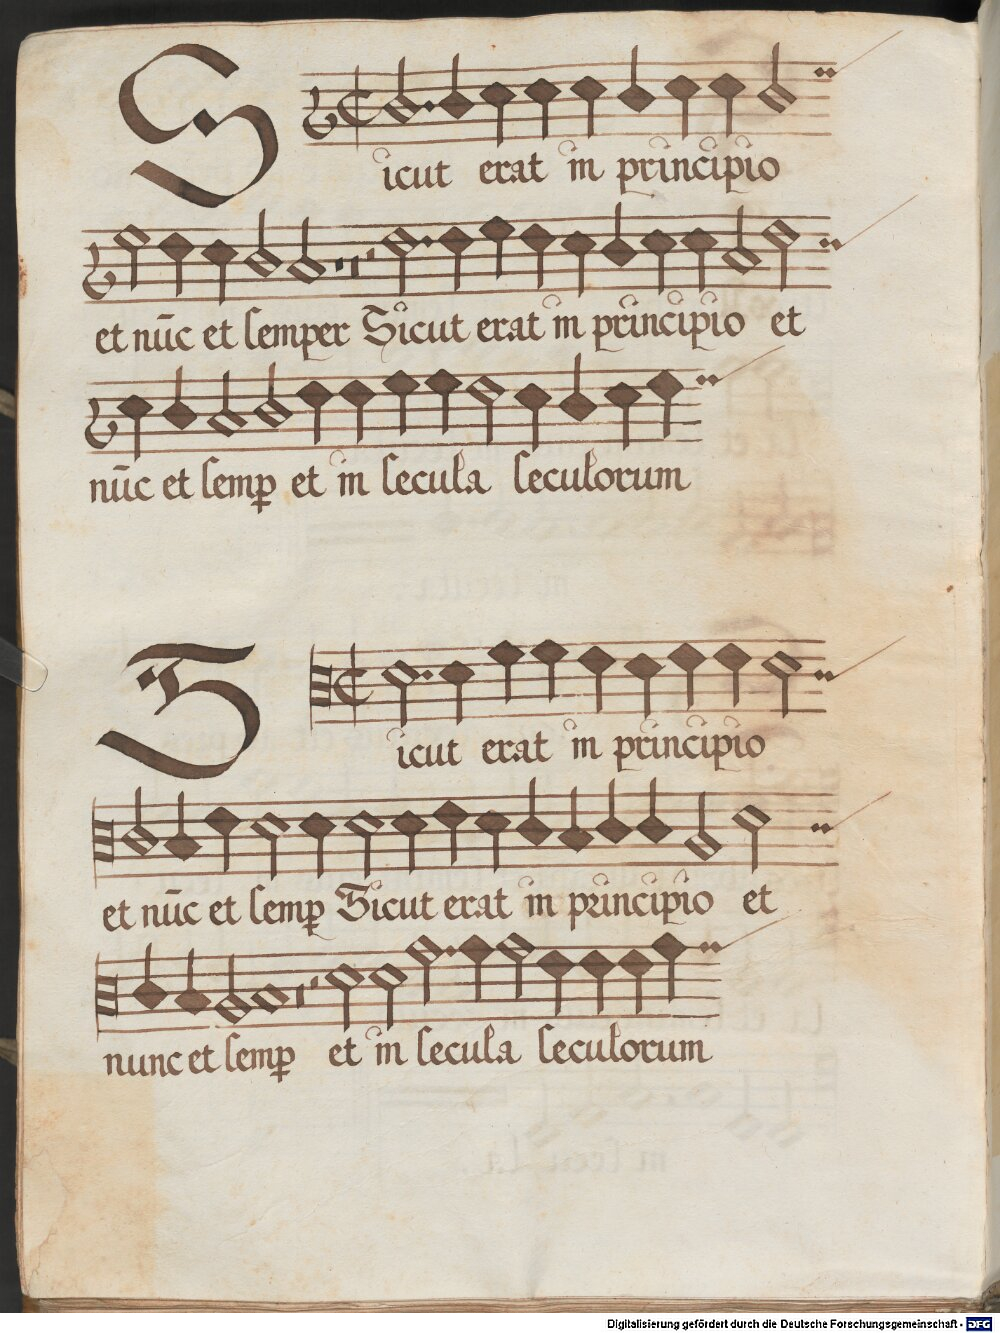 Sicut erat in principio
et nūc et semper Sicut erat in principio et
nūc et semꝑ et in secula seculorum
Sicut erat in principio
et nūc et semꝑ Sicut erat in principio et
nunc et semꝑ et in secula seculorum
Digitalisierung gefördert durch die Deutsche Forschungsgemeinschaft - DFG